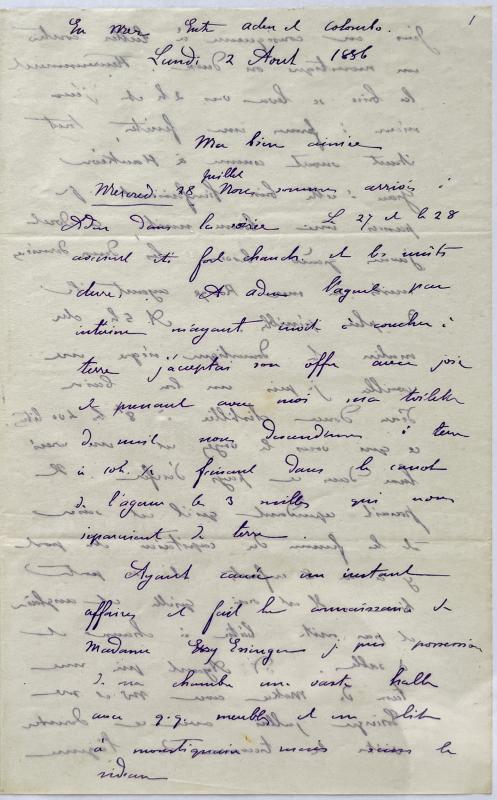 1
En mer Entre aden et colombo.
Lundi 2 Aout 1886
Ma bien aimée
juillet
Mercredi 28 Nous sommes arrivés à
Aden dans la soirée Le 27 et le 28
avaient été fort chauds et les nuits
dures. A aden l'agent par
intérim m'ayant invité à coucher à
terre j'acceptai son offre avec joie
et prenant avec moi ma toilette
de nuit nous descendimes à terre
à 10h ½ faisant dans le canot
de l'agent les 3 milles qui nous
séparaient de terre
Ayant causé un instant
affaires et fait la connaissance de
Madame Essinger je pris possession
de ma chambre une vaste halle
avec q.q. meubles et un lit
à moustiquaire mais sans le
rideau